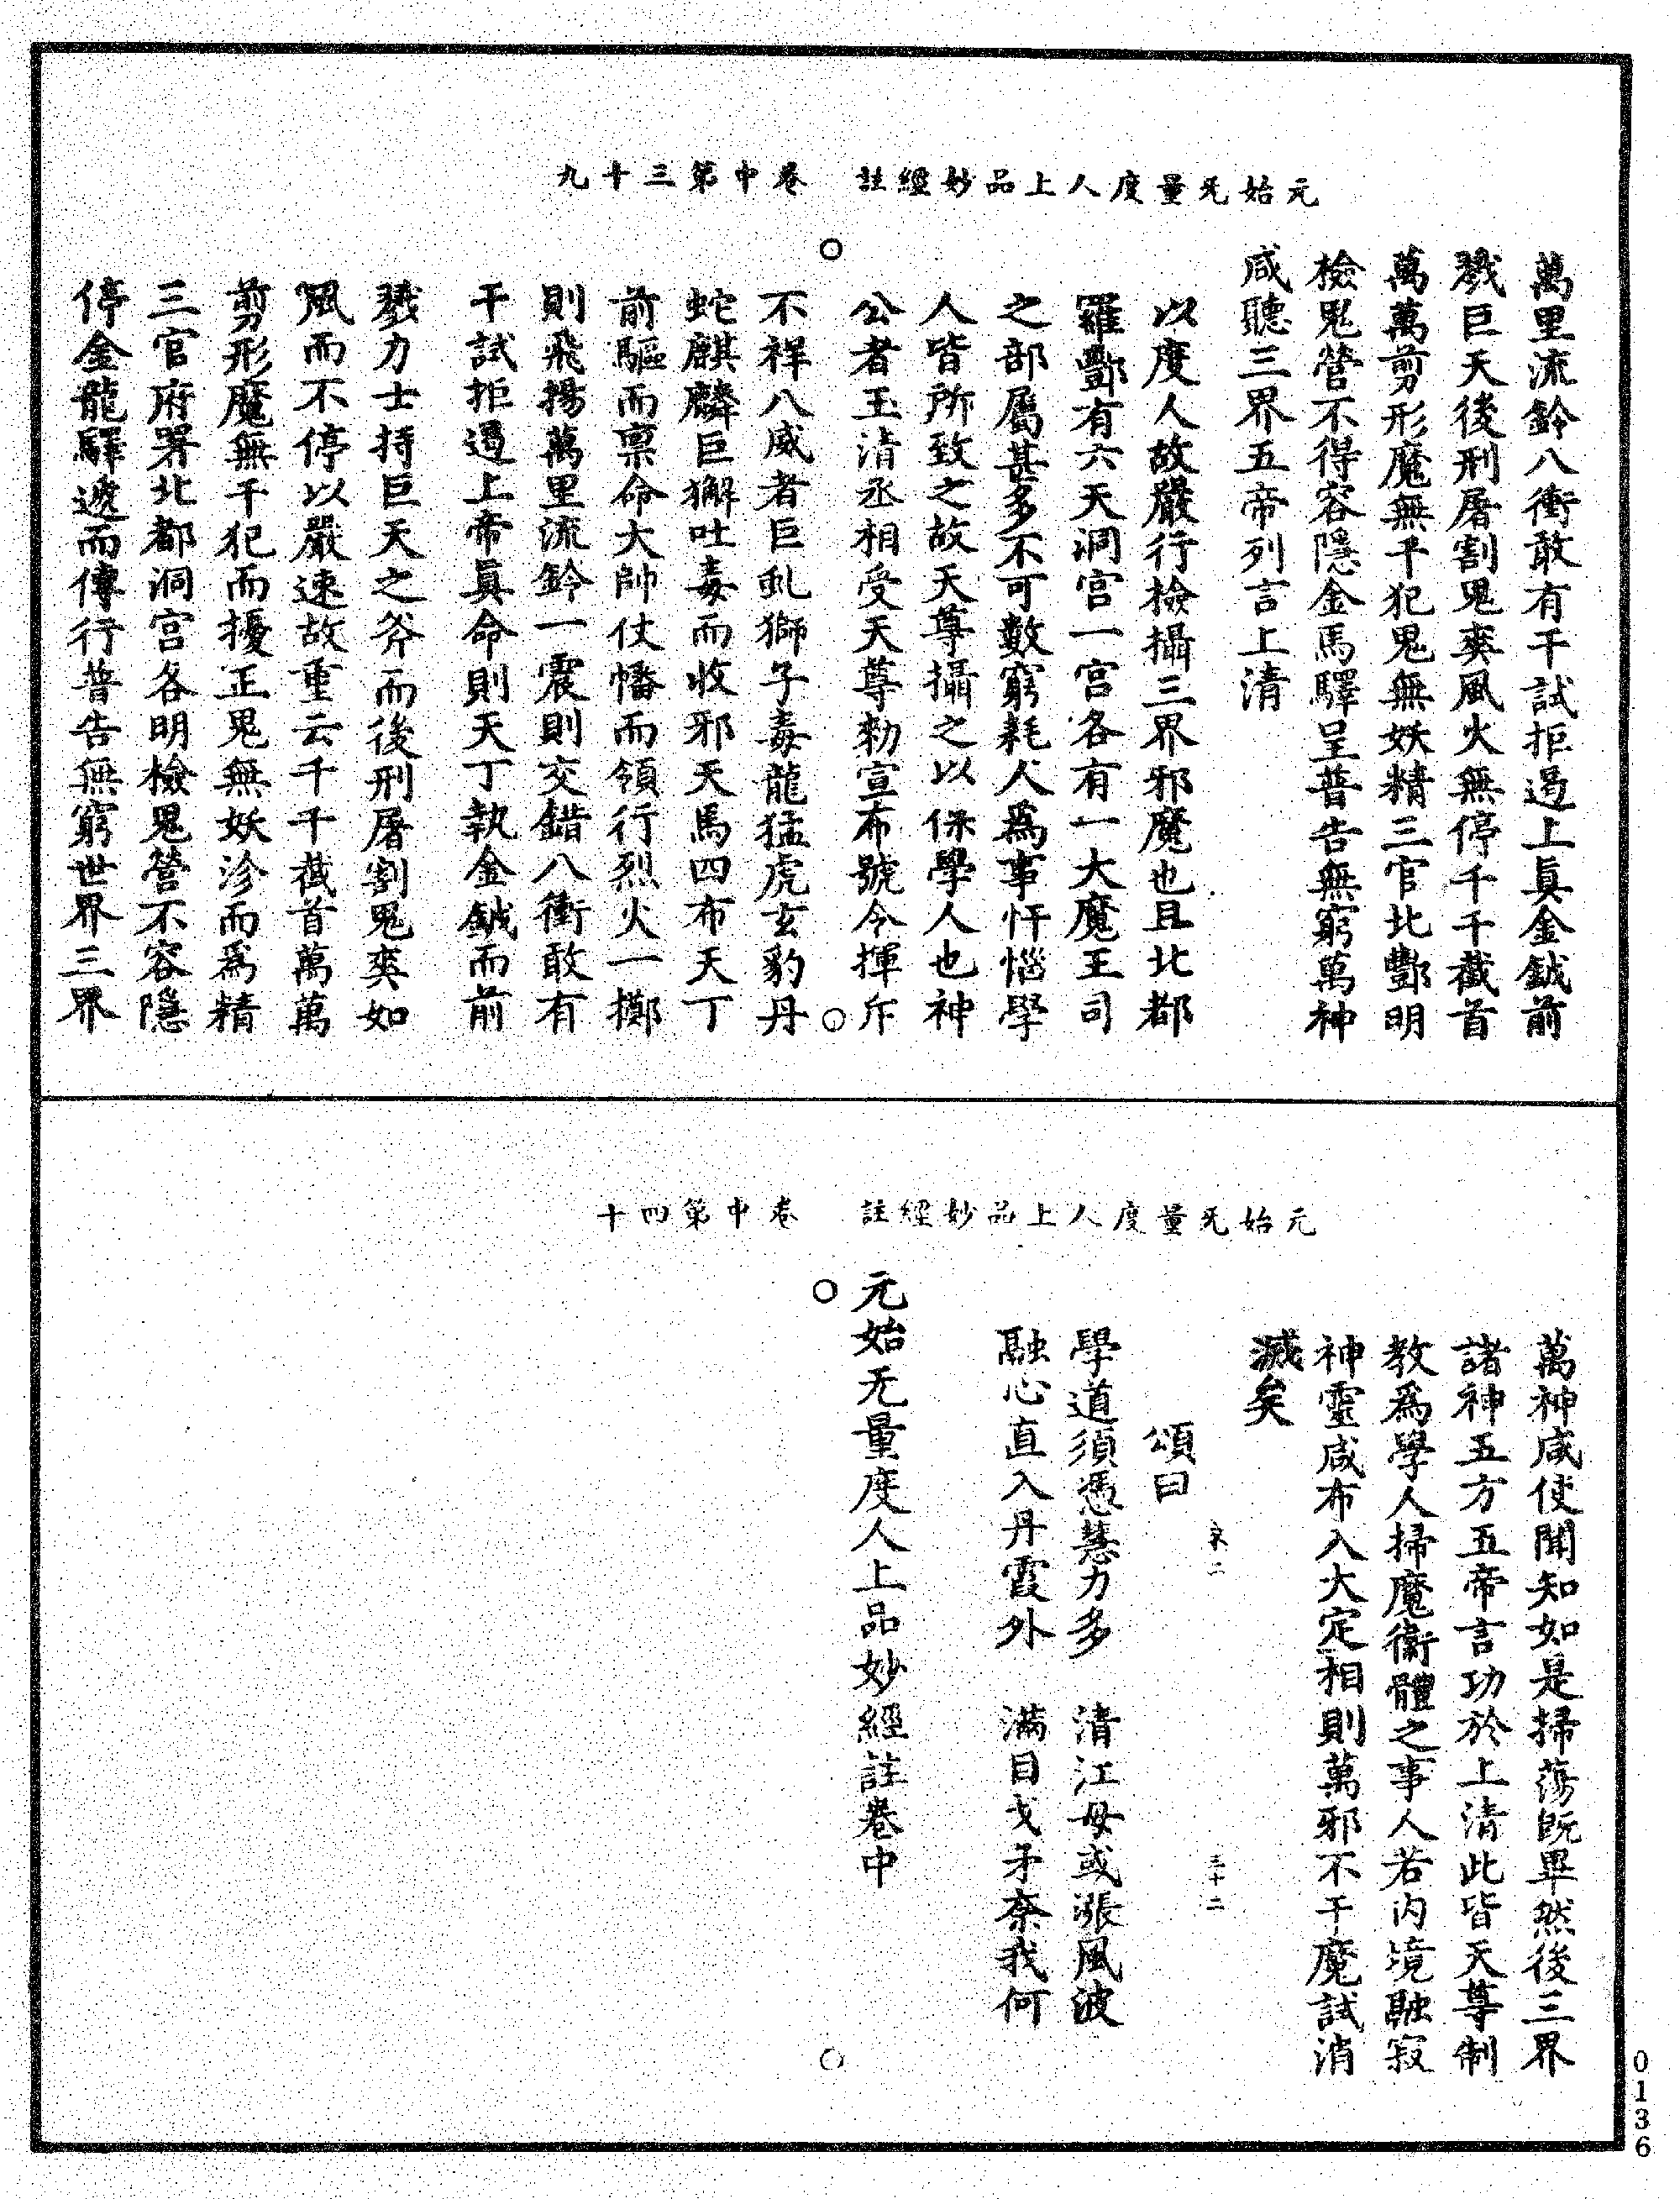 元始旡量度人上品妙經註　卷中第三十九
萬里流鈴八衝敢有干試拒遏上眞金鉞前
戮巨天後刑屠割鬼爽風火無停千千截首
萬萬剪形魔無干犯鬼無妖精三官北酆明
檢鬼營不得容隱金馬驛呈普告無窮萬神
咸聽三界五帝列言上清
以度人故嚴行檢攝三界邪魔也且北都
羅酆有六天洞宮一宮各有一大魔王司
之部屬甚多不可數窮耗人爲事忓惱學
人皆所致之故天尊攝之以保學人也神
公者玉清丞相受天尊勑宣布號令揮斥
不祥八威者巨虬獅子毒龍猛虎玄豹丹
蛇麒麟巨獬吐毒而收邪天馬四布天丁
前驅而禀命大帥仗幡而領行烈火一擲
則飛揚萬里流鈴一震則交錯八衝敢有
干試拒遏上帝眞命則天丁執金鉞而前
戮力士持巨天之斧而後刑屠割鬼爽如
風而不停以嚴速故重云千千截首萬萬
剪形魔無干犯而擾正鬼無妖沴而爲精
三官府署北都洞宮各明檢鬼營不容隱
停金龍驛遞而傳行普告無窮世界三界
元始旡量度人上品妙經註　卷中第四十
萬神咸使聞知如是掃蕩旣畢然後三界
諸神五方五帝言功於上清此皆天尊制
教爲學人掃魔衞體之事人若内境融寂
神靈咸布入大定相則萬邪不干魔試消
滅矣
三十二
頌曰
學道須憑慧力多　清江毋或漲風波
融心直入丹霞外　滿目戈矛奈我何
元始无量度人上品妙經註卷中
0136